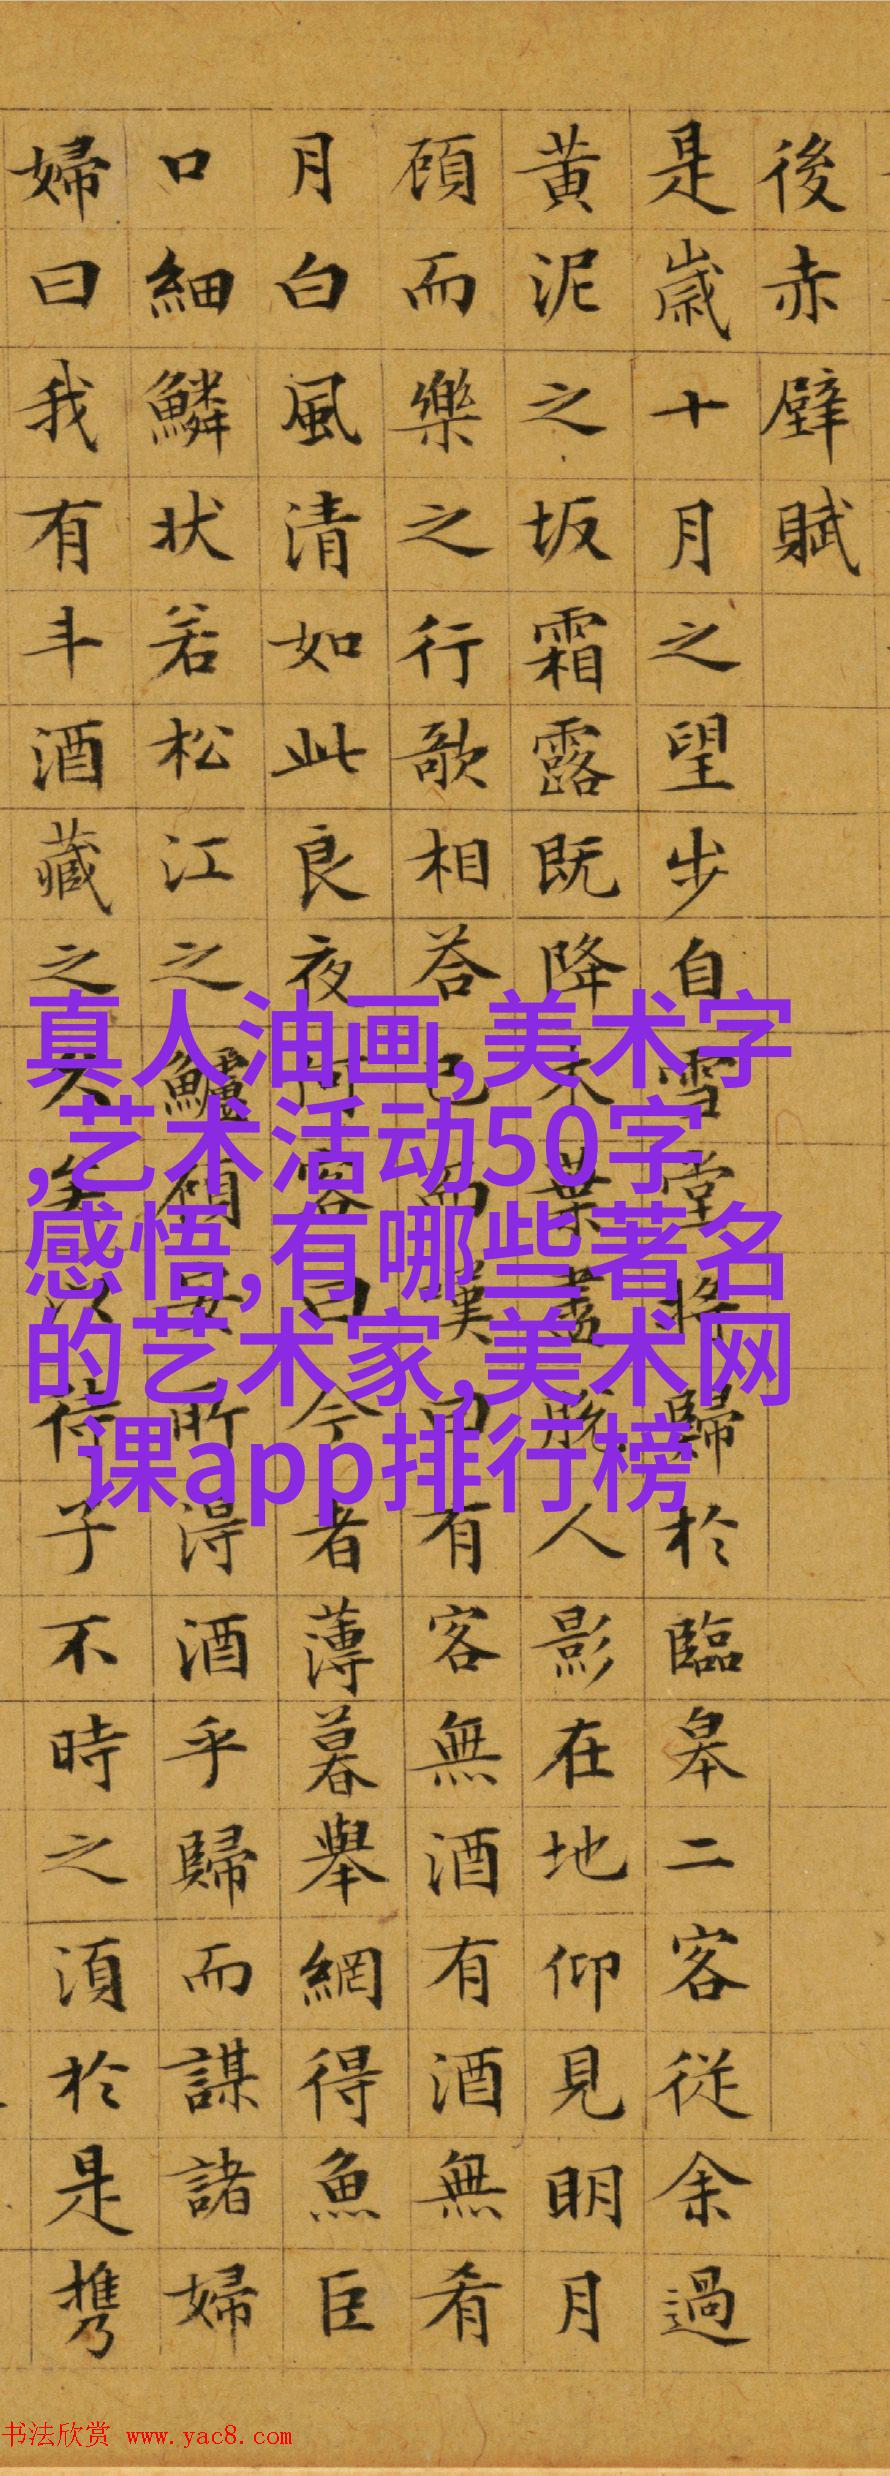 後赤壁賦
是歲十月之望步自雪堂將歸於臨皋二客從余過
黄泥之坂霜露既降木葉盡脫人影在地仰見明月
頋而樂之行歌相荅已而嘆曰有客無酒有酒無肴
月白風清如此良夜何客曰今者薄暮舉網得魚巨
口細鱗状若松江之鱸頋安所淂酒乎歸而謀諸婦
婦曰我有斗酒藏之久矣以待子不時之湏於是携
真人油画,美术字
,艺术活动50字
感悟,有哪些著名
的艺术家,美术网
课app排行榜
书法欣赏 www.yac8.com